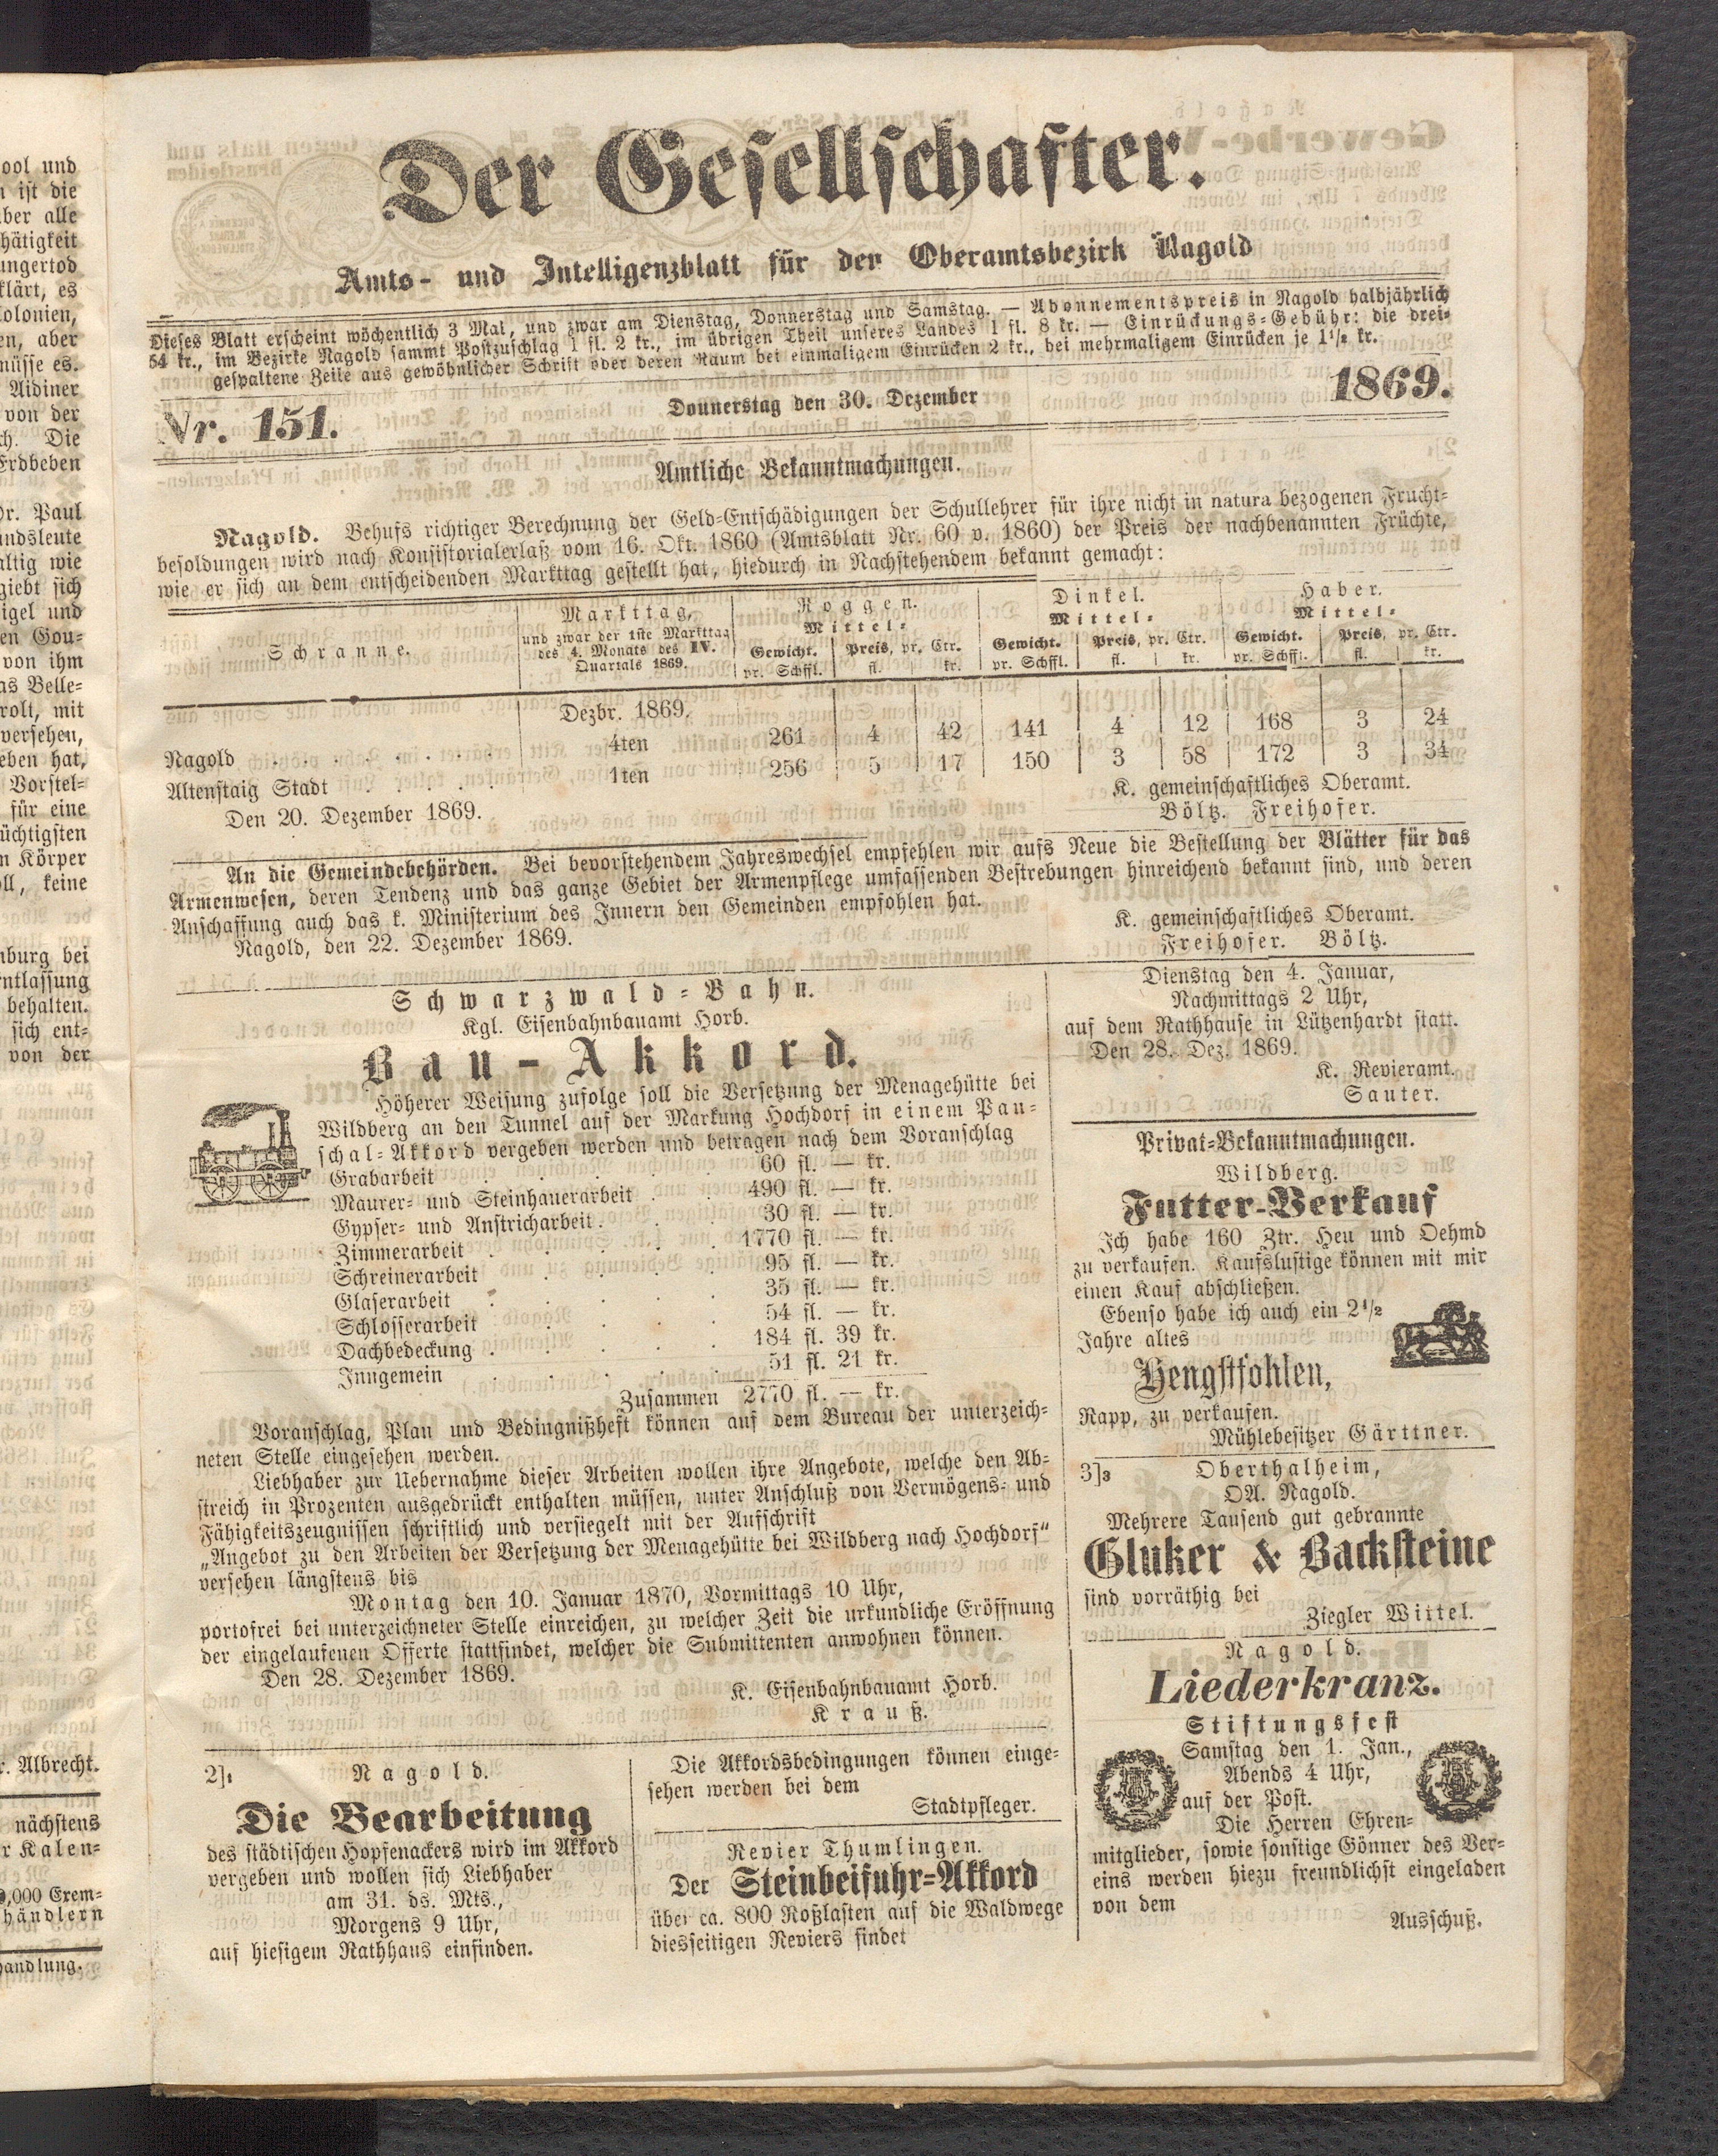 Der Gesellschafter.
Amts- und Intelligenzblatt für den Oberamtsbezirk Nagold
Dieses Blatt erscheint wöchentlich 3 Mal, und zwar am Dienstag, Donnerstag und Samstag. — Abonnementspreis in Nagold halbjährlich
54 kr., im Bezirke Nagold sammt Postzuschlag 1 fl. 2 kr., im übrigen Theil unseres Landes 1 fl. 8 kr. — Einrückungs-Gebühr: die drei-
gespaltene Zeile aus gewöhnlicher Schrift oder deren Raum bei einmaligem Einrücken 2 kr., bei mehrmaligem Einrücken je 1½ kr.
Nr. 151. Donnerstag den 30. Dezember 1869.
Amtliche Bekanntmachungen.
Nagold. Behufs richtiger Berechnung der Geld-Entschädigungen der Schullehrer für ihre nicht in natura bezogenen Frucht-
besoldungen wird nach Konsistorialerlaß vom 16. Okt. 1860 (Amtsblatt Nr. 60 v. 1860) der Preis der nachbenannten Früchte,
wie er sich an dem entscheidenden Markttag gestellt hat, hiedurch in Nachstehendem bekannt gemacht:
Schranne. Markttag, und zwar der 1ste Markttag des 4. Monats des IV. Quartals 1869. Roggen. Dinkel. Haber.
Mittel- Mittel- Mittel-
Gewicht. Preis, pr. Ctr. Gewicht. Preis, pr. Ctr. Gewicht. Preis, pr. Ctr.
pr. Schffl. fl. kr. pr. Schffl. fl. kr. pr. Schffl. fl. kr.
Dezbr. 1869.
Nagold . . . . . . . . 4ten 261 4 42 141 4 12 168 3 24
Altenstaig Stadt . . . . . 1ten 256 5 17 150 3 58 172 3 34
Den 20. Dezember 1869.
K. gemeinschaftliches Oberamt.
Böltz. Freihofer.
An die Gemeindebehörden. Bei bevorstehendem Jahreswechsel empfehlen wir aufs Neue die Bestellung der Blätter für das
Armenwesen, deren Tendenz und das ganze Gebiet der Armenpflege umfassenden Bestrebungen hinreichend bekannt sind, und deren
Anschaffung auch das k. Ministerium des Innern den Gemeinden empfohlen hat.
Nagold, den 22. Dezember 1869.
K. gemeinschaftliches Oberamt.
Freihofer. Böltz.
Schwarzwald-Bahn.
Kgl. Eisenbahnbauamt Horb.
Bau-Akkord.
Höherer Weisung zufolge soll die Versetzung der Menagehütte bei
Wildberg an den Tunnel auf der Markung Hochdorf in einem Pau-
schal-Akkord vergeben werden und betragen nach dem Voranschlag
Grabarbeit . . . 60 fl. — kr.
Maurer- und Steinhauerarbeit . . 490 fl. — kr.
Gypser- und Anstricharbeit . . . 30 fl. — kr.
Zimmerarbeit . . . . 1770 fl. — kr.
Schreinerarbeit . . . . 95 fl. — kr.
Glaserarbeit . . . . 35 fl. — kr.
Schlosserarbeit . . . . 54 fl. — kr.
Dachbedeckung . . . . 184 fl. 39 kr.
Inngemein . . . . 51 fl. 21 kr.
Zusammen 2770 fl. — kr.
Voranschlag, Plan und Bedingnißheft können auf dem Bureau der unterzeich-
neten Stelle eingesehen werden.
Liebhaber zur Uebernahme dieser Arbeiten wollen ihre Angebote, welche den Ab-
streich in Prozenten ausgedrückt enthalten müssen, unter Anschluß von Vermögens- und
Fähigkeitszeugnissen schriftlich und versiegelt mit der Aufschrift
„Angebot zu den Arbeiten der Versetzung der Menagehütte bei Wildberg nach Hochdorf“
versehen längstens bis
Montag den 10. Januar 1870, Vormittags 10 Uhr,
portofrei bei unterzeichneter Stelle einreichen, zu welcher Zeit die urkundliche Eröffnung
der eingelaufenen Offerte stattfindet, welcher die Submittenten anwohnen können.
Den 28. Dezember 1869.
K. Eisenbahnbauamt Horb.
Krauß.
2]1 Nagold.
Die Bearbeitung
des städtischen Hopfenackers wird im Akkord
vergeben und wollen sich Liebhaber
am 31. ds. Mts.,
Morgens 9 Uhr,
auf hiesigem Rathhaus einfinden.
Die Akkordsbedingungen können einge-
sehen werden bei dem
Stadtpfleger.
Revier Thumlingen.
Der Steinbeifuhr-Akkord
über ca. 800 Roßlasten auf die Waldwege
diesseitigen Reviers findet
Dienstag den 4. Januar,
Nachmittags 2 Uhr,
auf dem Rathhause in Lützenhardt statt.
Den 28. Dez. 1869.
K. Revieramt.
Sauter.
Privat-Bekanntmachungen.
Wildberg.
Futter-Verkauf
Ich habe 160 Ztr. Heu und Oehmd
zu verkaufen. Kaufslustige können mit mir
einen Kauf abschließen.
Ebenso habe ich auch ein 2½
Jahre altes
Hengstfohlen,
Rapp, zu verkaufen.
Mühlebesitzer Gärttner.
3]3 Oberthalheim,
OA. Nagold.
Mehrere Tausend gut gebrannte
Gluker & Backsteine
sind vorräthig bei
Ziegler Wittel.
Nagold.
Liederkranz.
Stiftungsfest
Samstag den 1. Jan.,
Abends 4 Uhr,
auf der Post.
Die Herren Ehren-
mitglieder, sowie sonstige Gönner des Ver-
eins werden hiezu freundlichst eingeladen
von dem
Ausschuß.